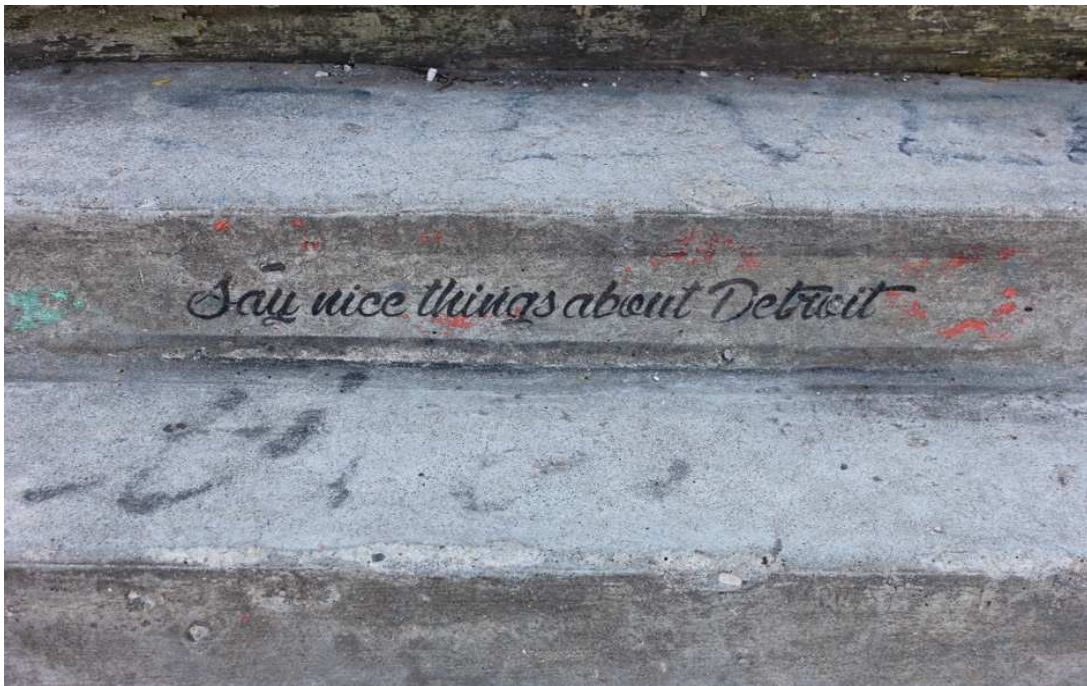 Say nice things about Detroit